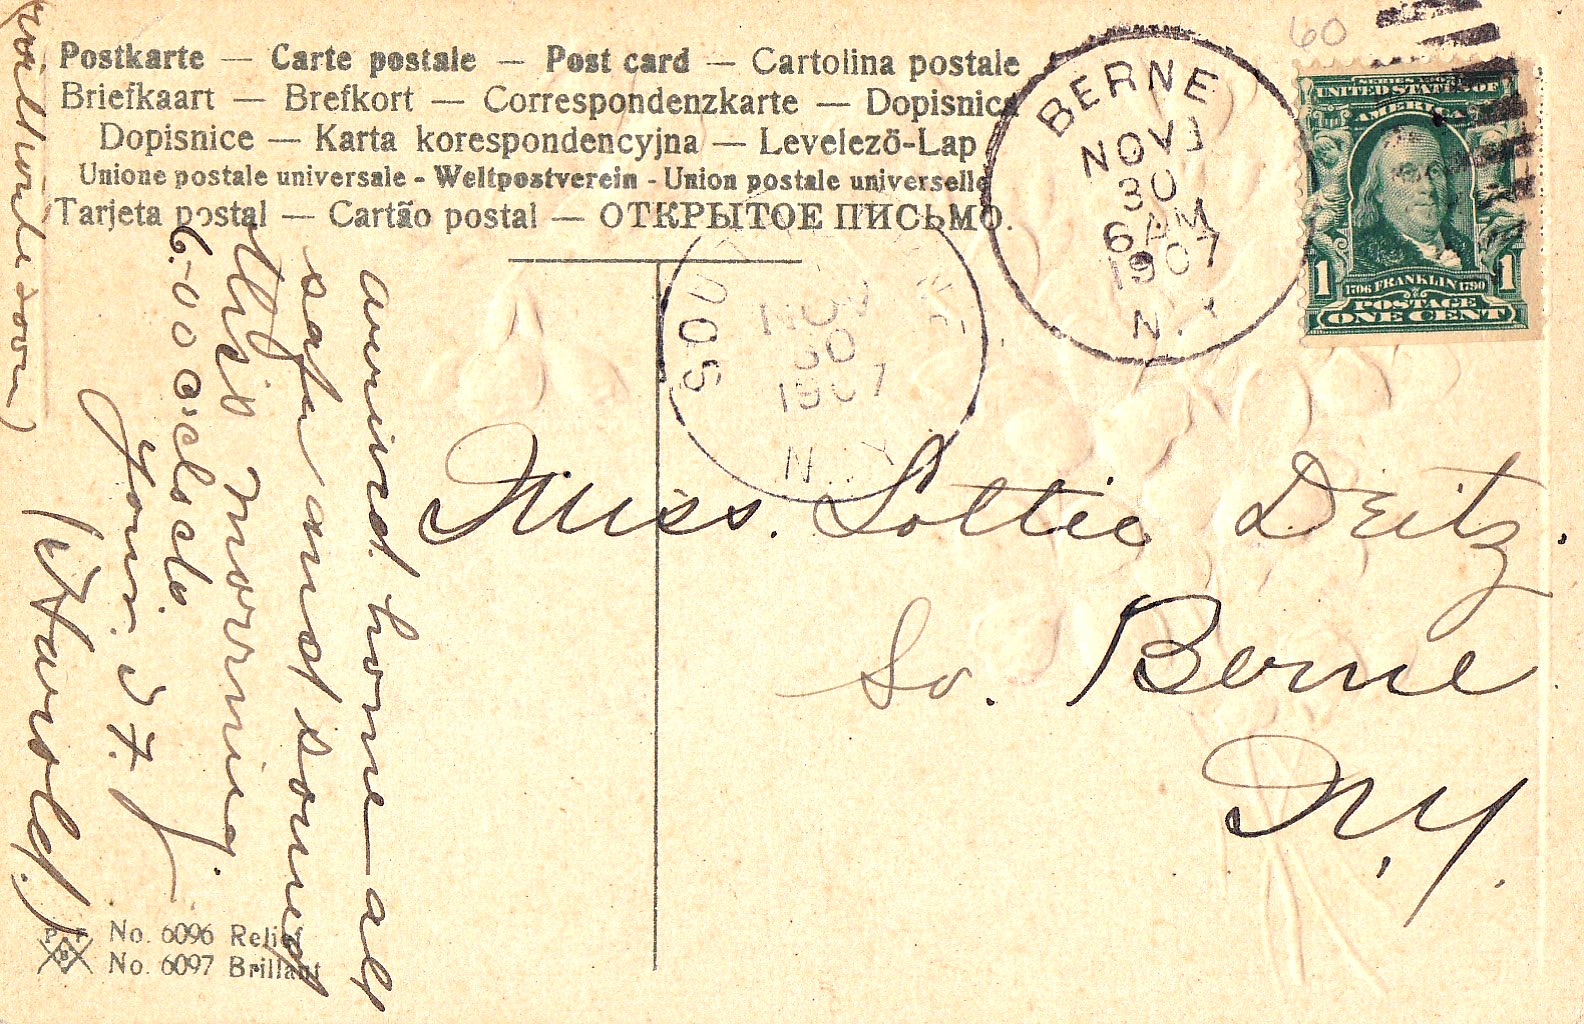 Postkarte — Carte postale — Post card — Cartolina postale
Briefkaart — Brefkort — Correspondenzkarte — Dopisnica
Dopisnice — Karta korespondencyjna — Levelező-Lap
Unione postale universale - Weltpostverein - Union postale universelle
Tarjeta postal — Cartão postal — ОТКРЫТОЕ ПИСЬМО.
60
BERNE
NOV
30
6 AM
1907
N.Y
UNITED STATES OF
AMERICA
1 1
1706 FRANKLIN 1790
POSTAGE
ONE CENT
SOU
NOV
30
1907
N.Y
Miss. Lottie Deitz.
So. Berne
N.Y.
arrived home-all
safe and sound
this morning.
6-00 o'clock.
Your.
(Harold.)
(will write soon)
P F
B
No. 6096 Relief
No. 6097 Brillant